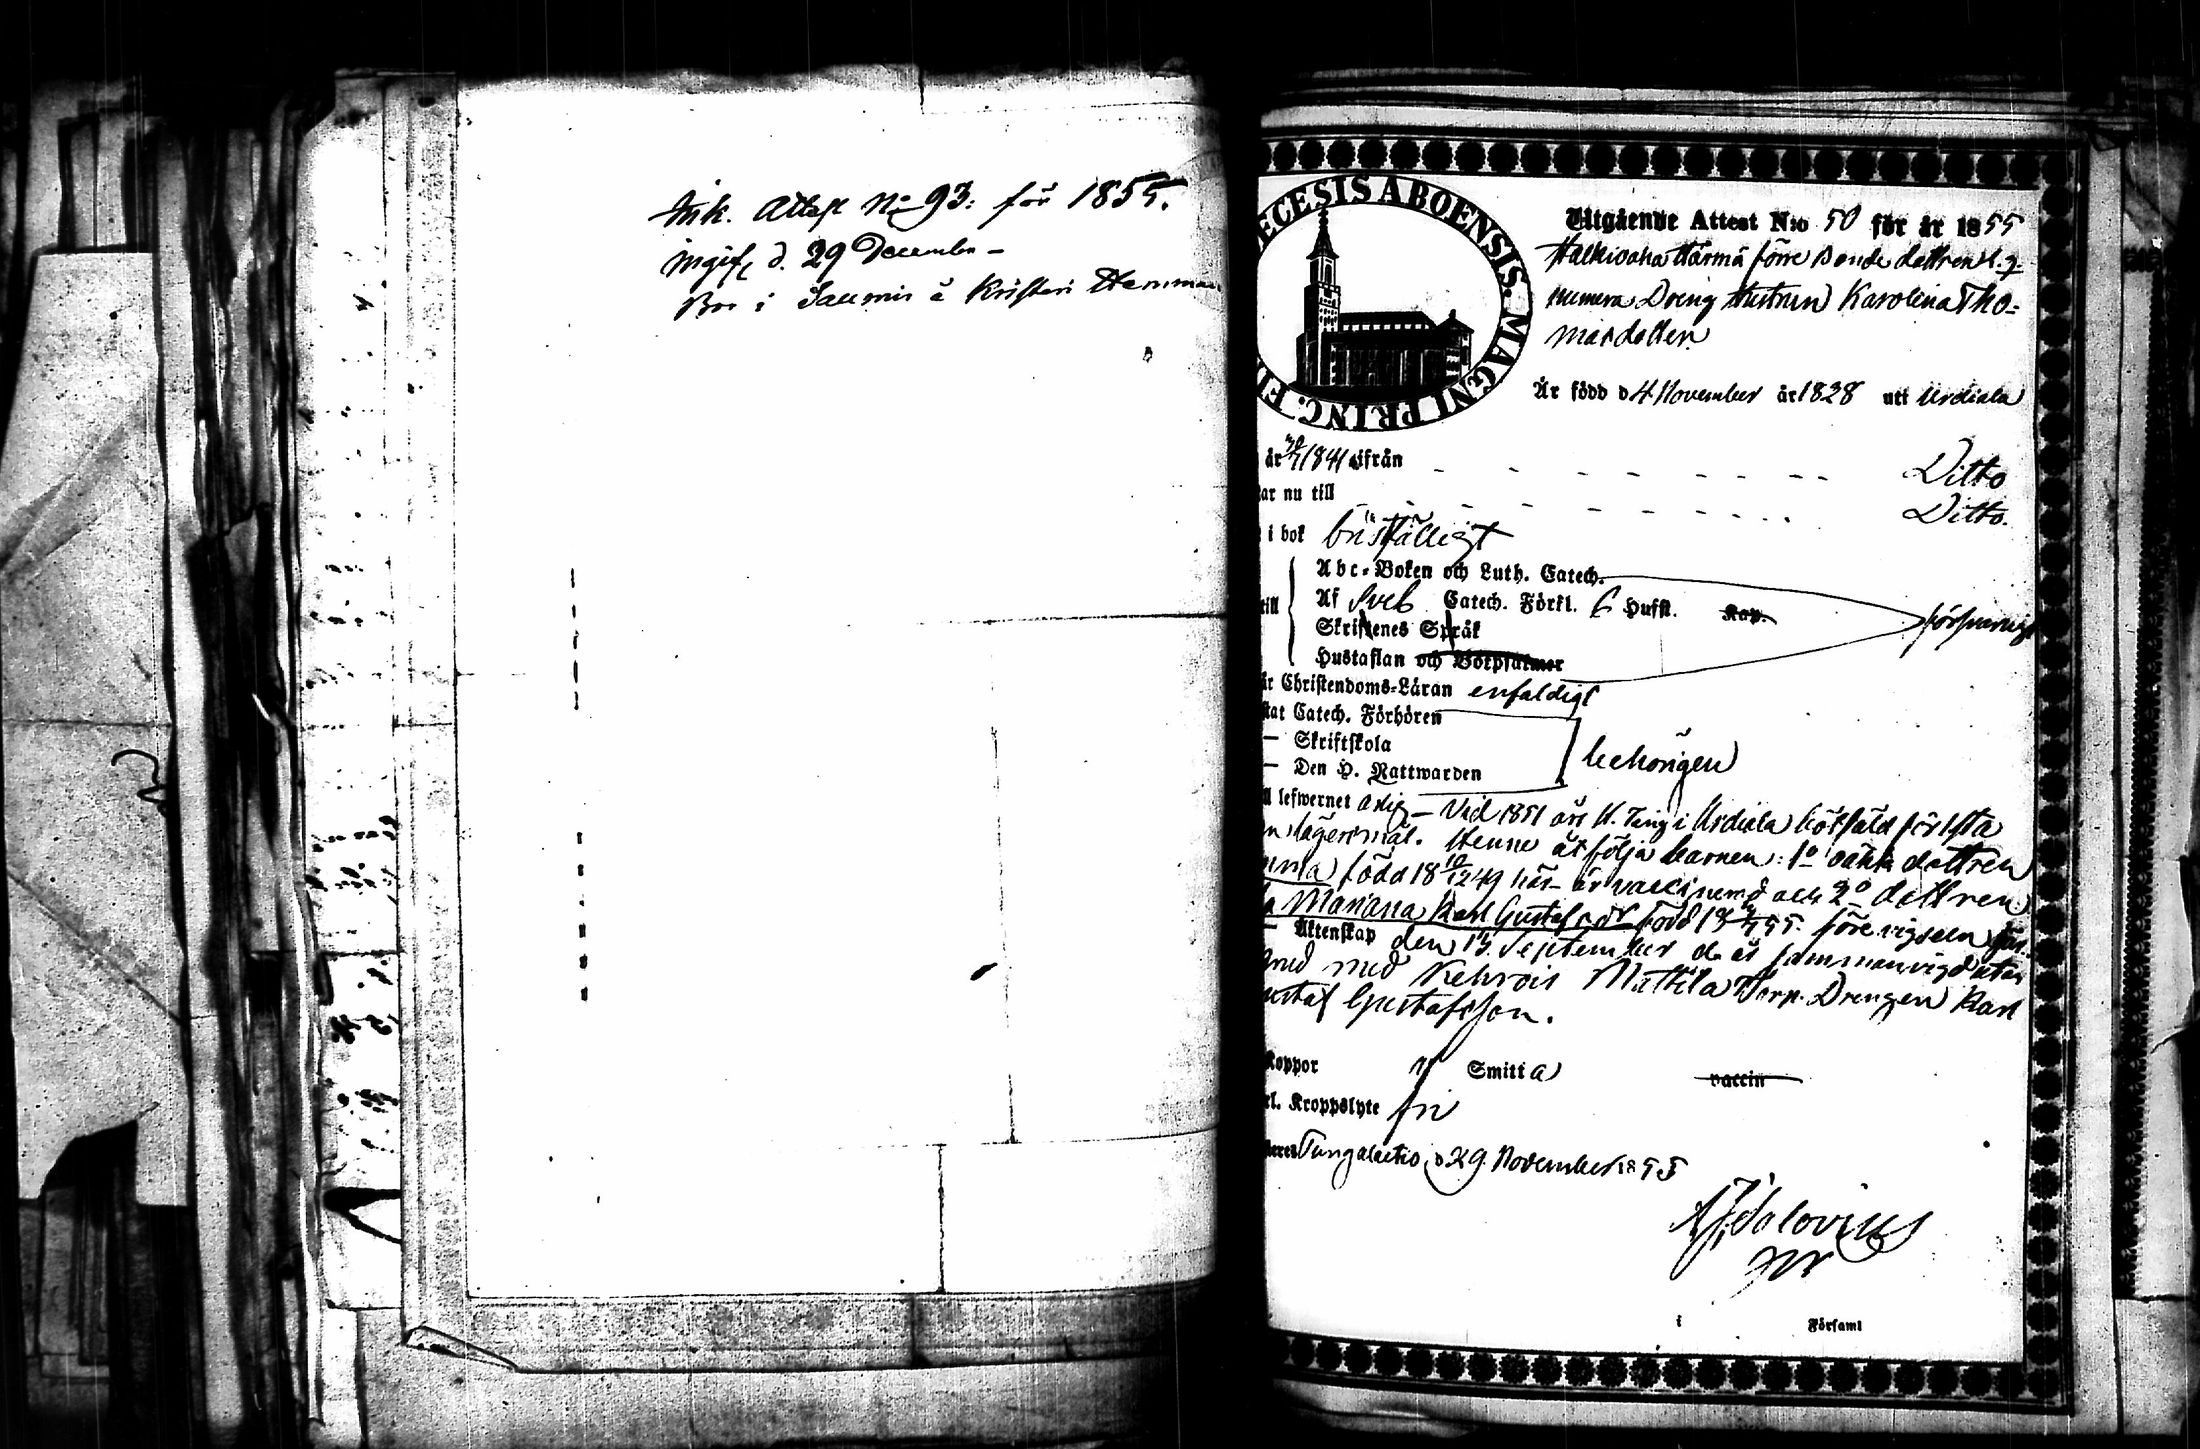 Ink. Attest No 93: för 1855.
ingifv. d. 29 December
Bor i Saumis å Kristeri Hemman
ECESIS ABOENSIS. MAGNI PRINC. FI
Utgående Attest N:o 50 för år 1855
Halkivaha Härmä förre Bonde dottren
numera Dreng Hustrun Karolina Tho-
masdotter.
Är född d 4 November år 1828 uti Urdiala
år 1841 ifrån Ditto
ar nu till Ditto.
i bok bristfälligt
Abc-Boken och Luth. Catech.
Af Sveb Catech. Förkl. 6 Hufst. Kap. försvarligt
Skriftenes Språk
Hustaflan och Botpsalmer
är Christendoms-Läran enfaldigt
stat Catech. Förhören
— Skriftskola behörigen
— Den H. Nattwarden
ll lefwernet — Vid 1851 års H. Ting i Urdiala bötfäld för 1sta
lägersmål. Henne åtfölja barnen: 1o oäkta dottren
född 18 10/12 49 här är vaccinerad och 2o dottren
Mariana Karl Gustafsdr född 18 55. före vigseln
— Äktenskap den 13 September d. år sammanvigd
med Kehrois Mattila Torp. Drengen Karl
ustaf Gustafsson.
Koppor Smitta vaccin
rl. Kroppslyte fri
Tungalaitio d 29. November 1855
i Församl